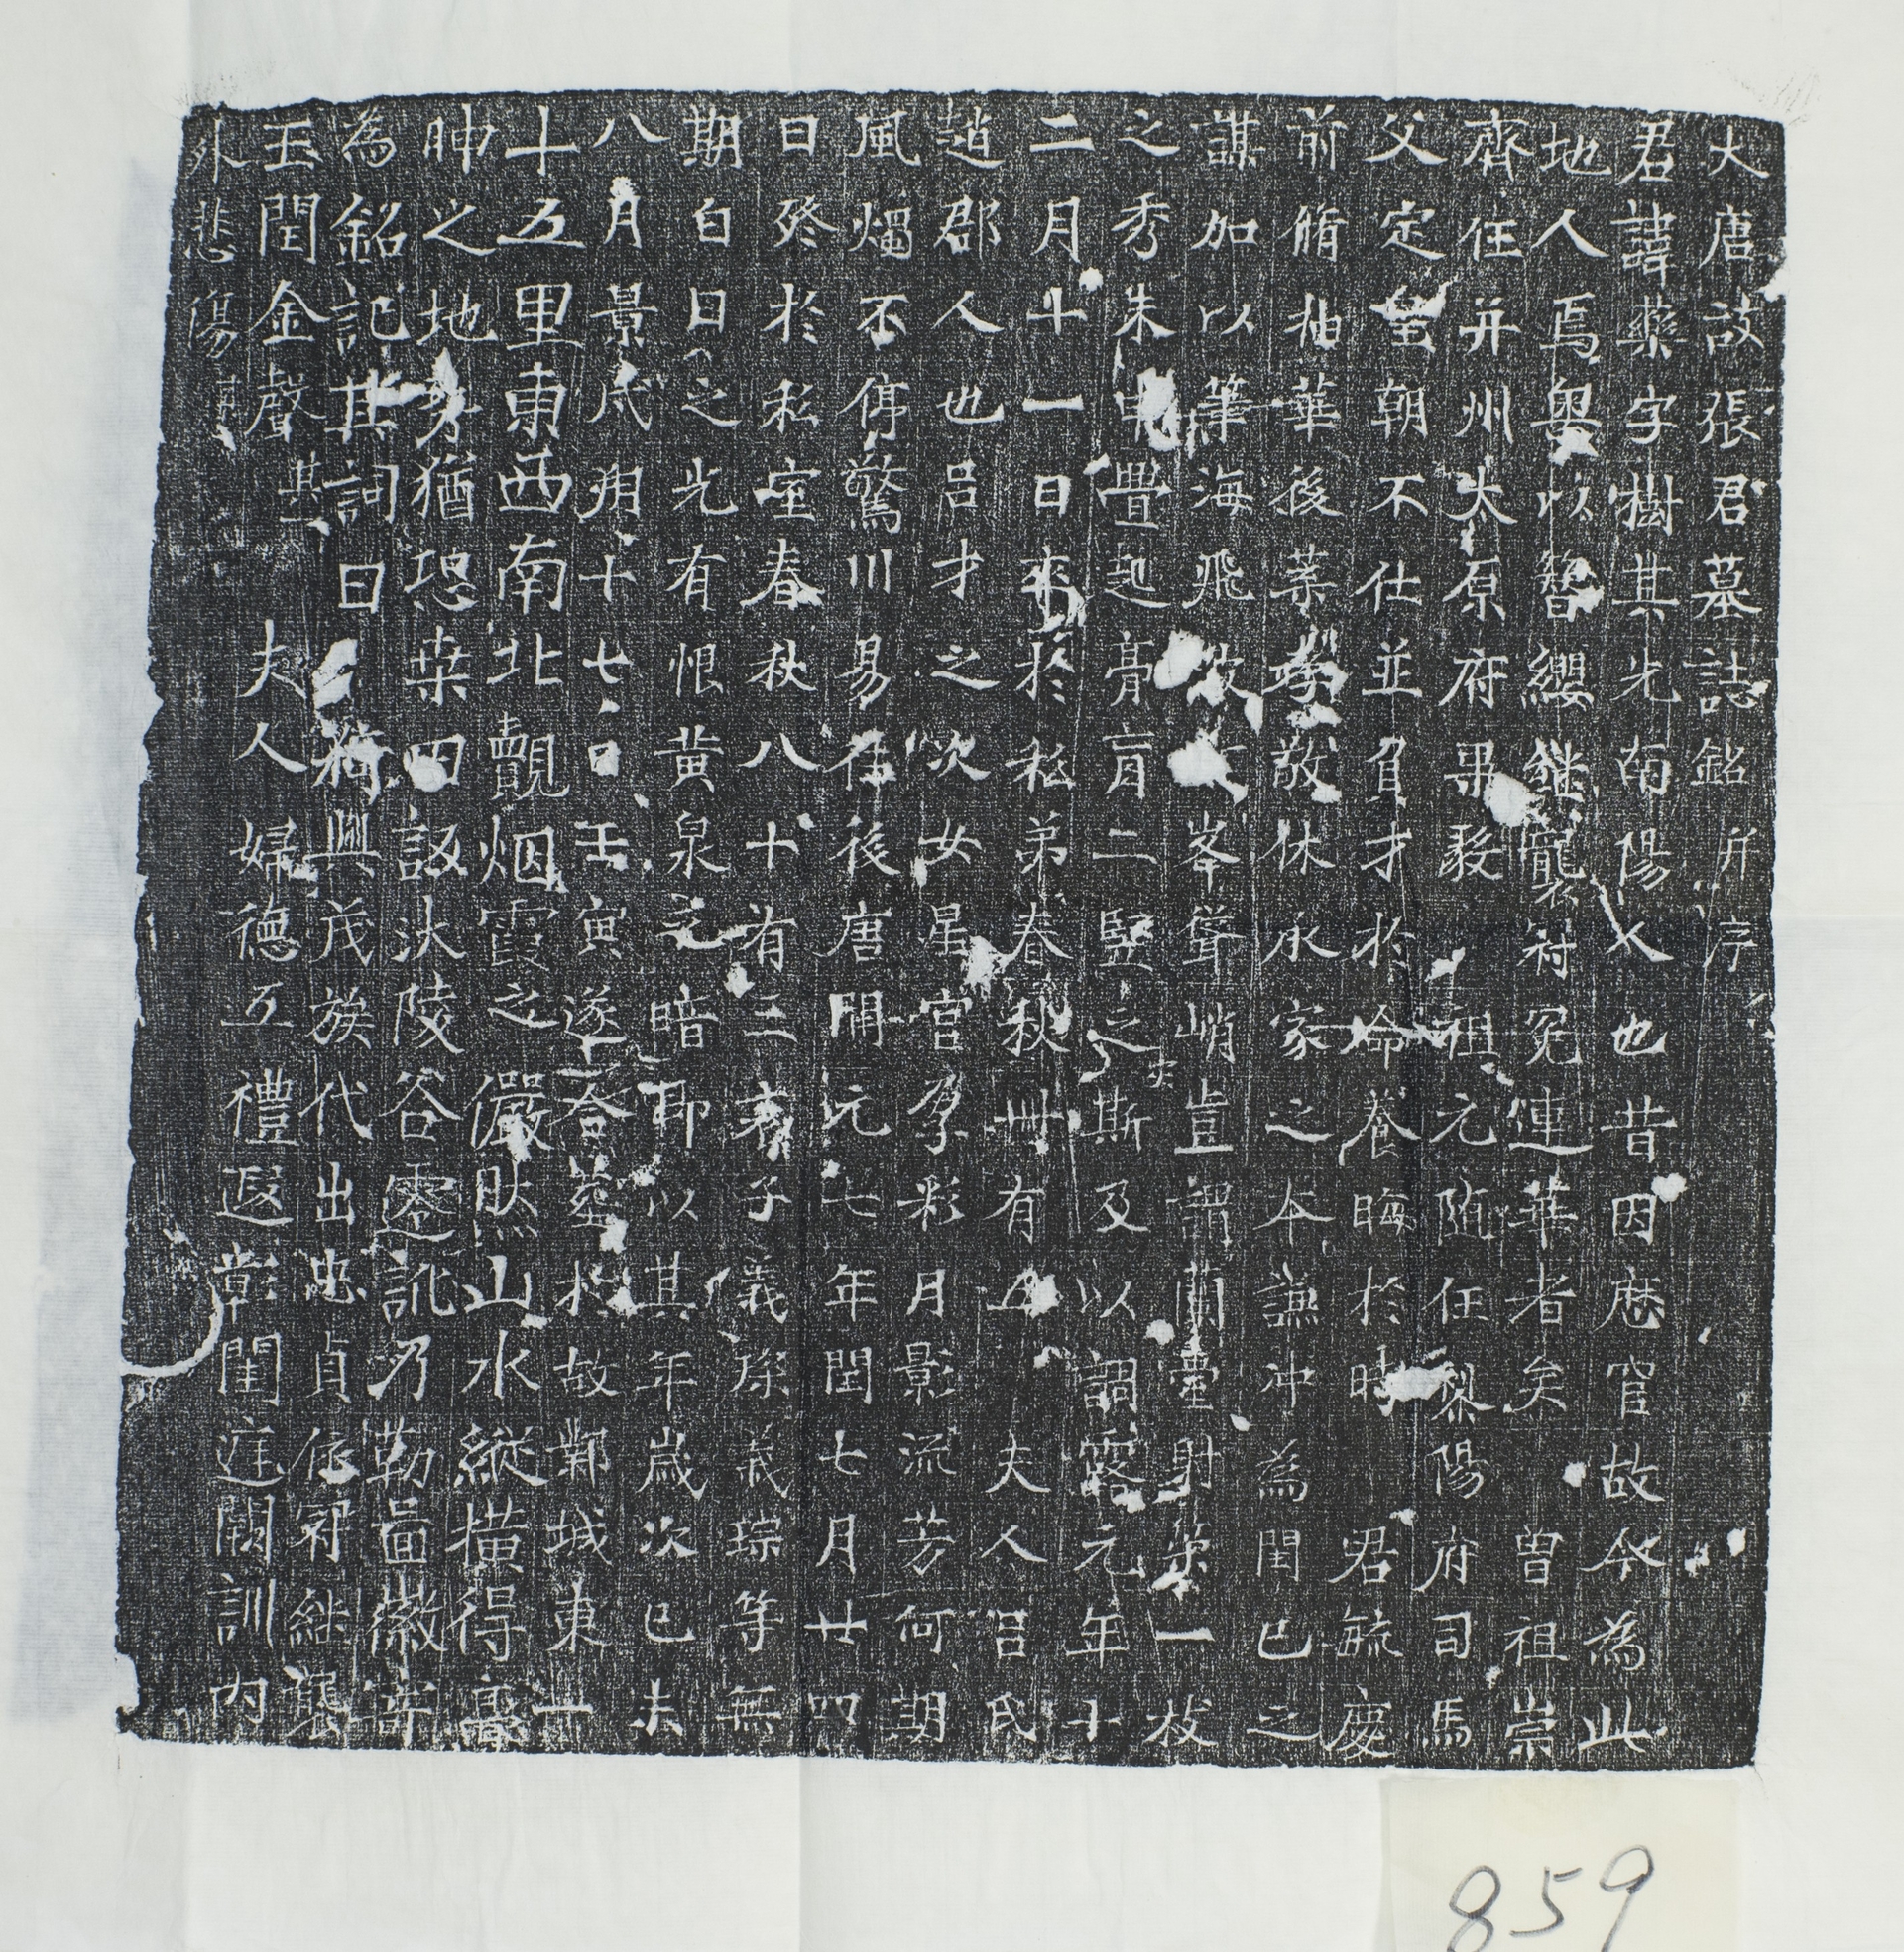 大唐故張君墓誌銘并序
君諱藥字樹其先南陽人也昔因歷官故今為此
地人焉奧以簪纓継寵襲衬冕連華者矣曾祖崇
齊任并州太原府果毅祖元陁任黎陽府司馬
父定皇朝不仕並負才於命養晦於時君毓慶
前脩抽華後葉孝敬休永家之本謙沖為閏己之
謀加以筆海飛波峯聳峭豈謂蘭臺射策一枝
之秀朱軒疊迹膏肓二竪之灾斯及以調露元年十
二月十一日卒於私弟春秋卌有五夫人呂氏
趙郡人也呂才之次女星官孕彩月影流芳何期
風燭不停驚川易往後唐開元七年閏七月廿四
日終於私室春秋八十有三孝子義琛義琮等無
期白日之光有恨黃泉之暗耶以其年歲次己未
八月景戌朔十七日壬寅遂合塟於故鄴城東一
十五里東西南北覩烟霞之儼然山水縱橫得臺
神之地矛猶恐桒田設汏陵谷遷訛乃勒啚徽寄
為銘記其詞曰
猗與茂族代出忠貞依冠継襲
玉閏金聲其一夫人婦德工禮遐彰閨庭闕訓內
外悲傷其二
859